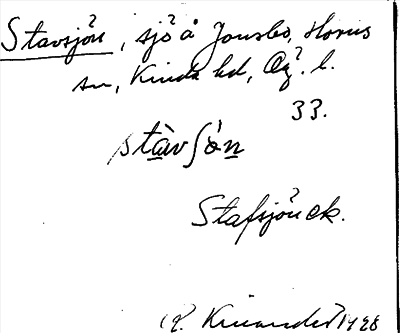 Stavsjön, sjö å Jonsbo, Horns
sn, Kinda hd, Ög. l.
33.
stàvʃön
Stafsjön ek.
R. Kinander 1928